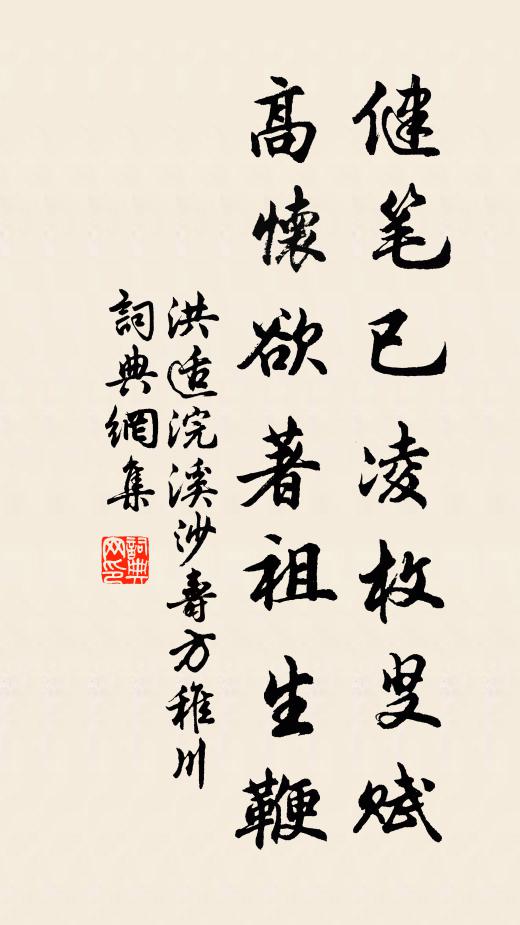 健笔已凌枚叟赋
高懷欲著祖生鞭
洪适浣溪沙壽方稚川
詞典網集
詞典网印